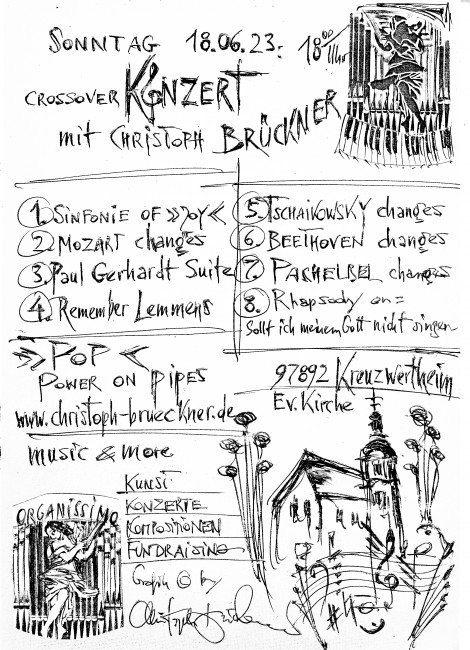 SONNTAG 18.06.23: 18⁰⁰ Uhr
CROSSOVER KONZERT
mit CHRISTOPH BRÜCKNER
1. SINFONIE OF »JOY«
2. MOZART changes
3. Paul Gerhardt Suite
4. Remember Lemmens
5. TSCHAIKOWSKY changes
6. BEETHOVEN changes
7. PACHELBEL changes
8. Rhapsody on =
Sollt ich meinem Gott nicht singen
»POP«
POWER ON PIPES
www.christoph-brueckner.de
music & more
97892 Kreuzwertheim
Ev. Kirche
KUNST
KONZERTE
KOMPOSITIONEN
FUNDRAISING
ORGANISSIMO
Graphik © by